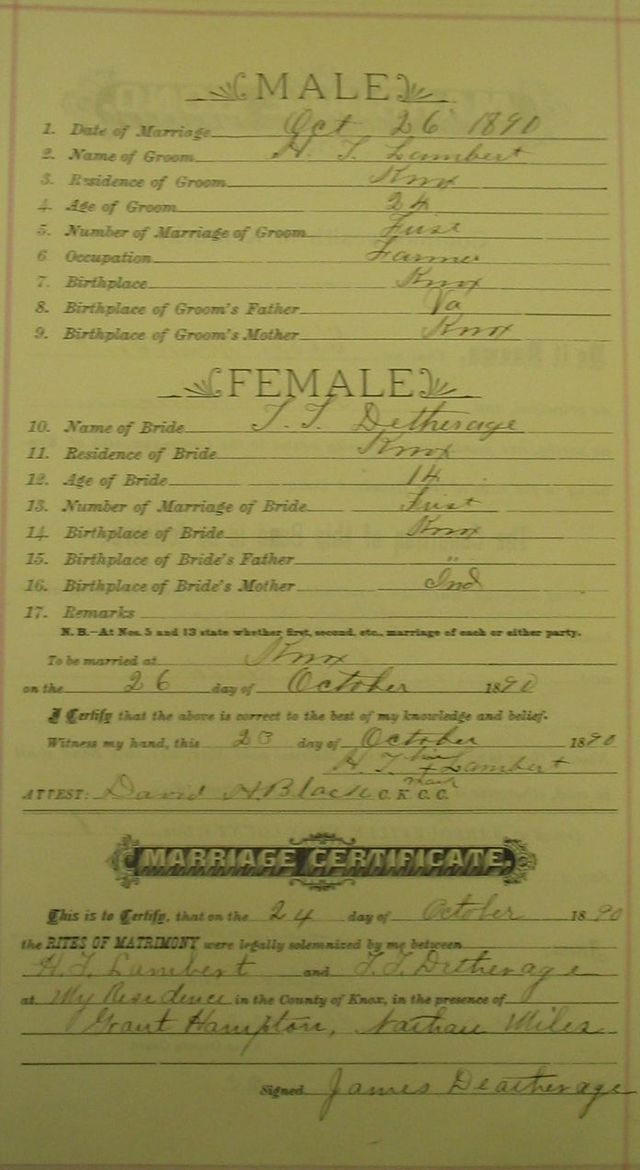 MALE
1. Date of Marriage Oct 26 1890
2. Name of Groom H. T. Lambert
3. Residence of Groom Knox
4. Age of Groom 24
5. Number of Marriage of Groom First
6 Occupation Farmer
7. Birthplace Knox
8. Birthplace of Groom's Father Va
9. Birthplace of Groom's Mother Knox
FEMALE
10. Name of Bride T. T. Detherage
11. Residence of Bride Knox
12. Age of Bride 14
13. Number of Marriage of Bride First
14. Birthplace of Bride Knox
15. Birthplace of Bride's Father "
16. Birthplace of Bride's Mother Ind
17. Remarks
N. B.—At Nos. 5 and 13 state whether first, second, etc., marriage of each or either party.
To be married at Knox
on the 26 day of October 1890
I Certify that the above is correct to the best of my knowledge and belief.
Witness my hand, this 23 day of October 1890
H. T. his + mark Lambert
ATTEST: David H. Black C. K. C. C.
MARRIAGE CERTIFICATE.
This is to Certify, that on the 24 day of October 1890
the RITES OF MATRIMONY were legally solemnized by me between
H. T. Lambert and T. T. Detherage
at My Residence in the County of Knox, in the presence of
Grant Hampton, Nathan Miles
Signed James Deatherage